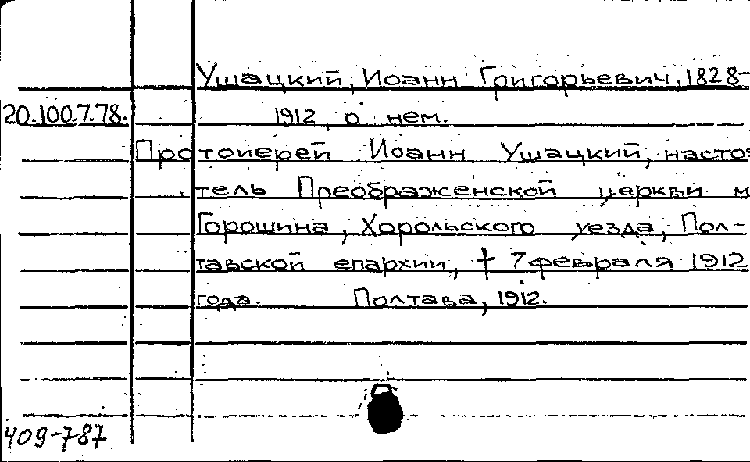 Ушацкий, Иоанн Григорьевич, 1828-
20.100.7.78. 1912, о нем.
Протоиерей Иоанн Ушацкий, настоя
тель Преображенской церкви м
Горошина, Хорольского уезда, Пол-
тавской епархии, † 7 февраля 1912
года. Полтава, 1912.
409-787